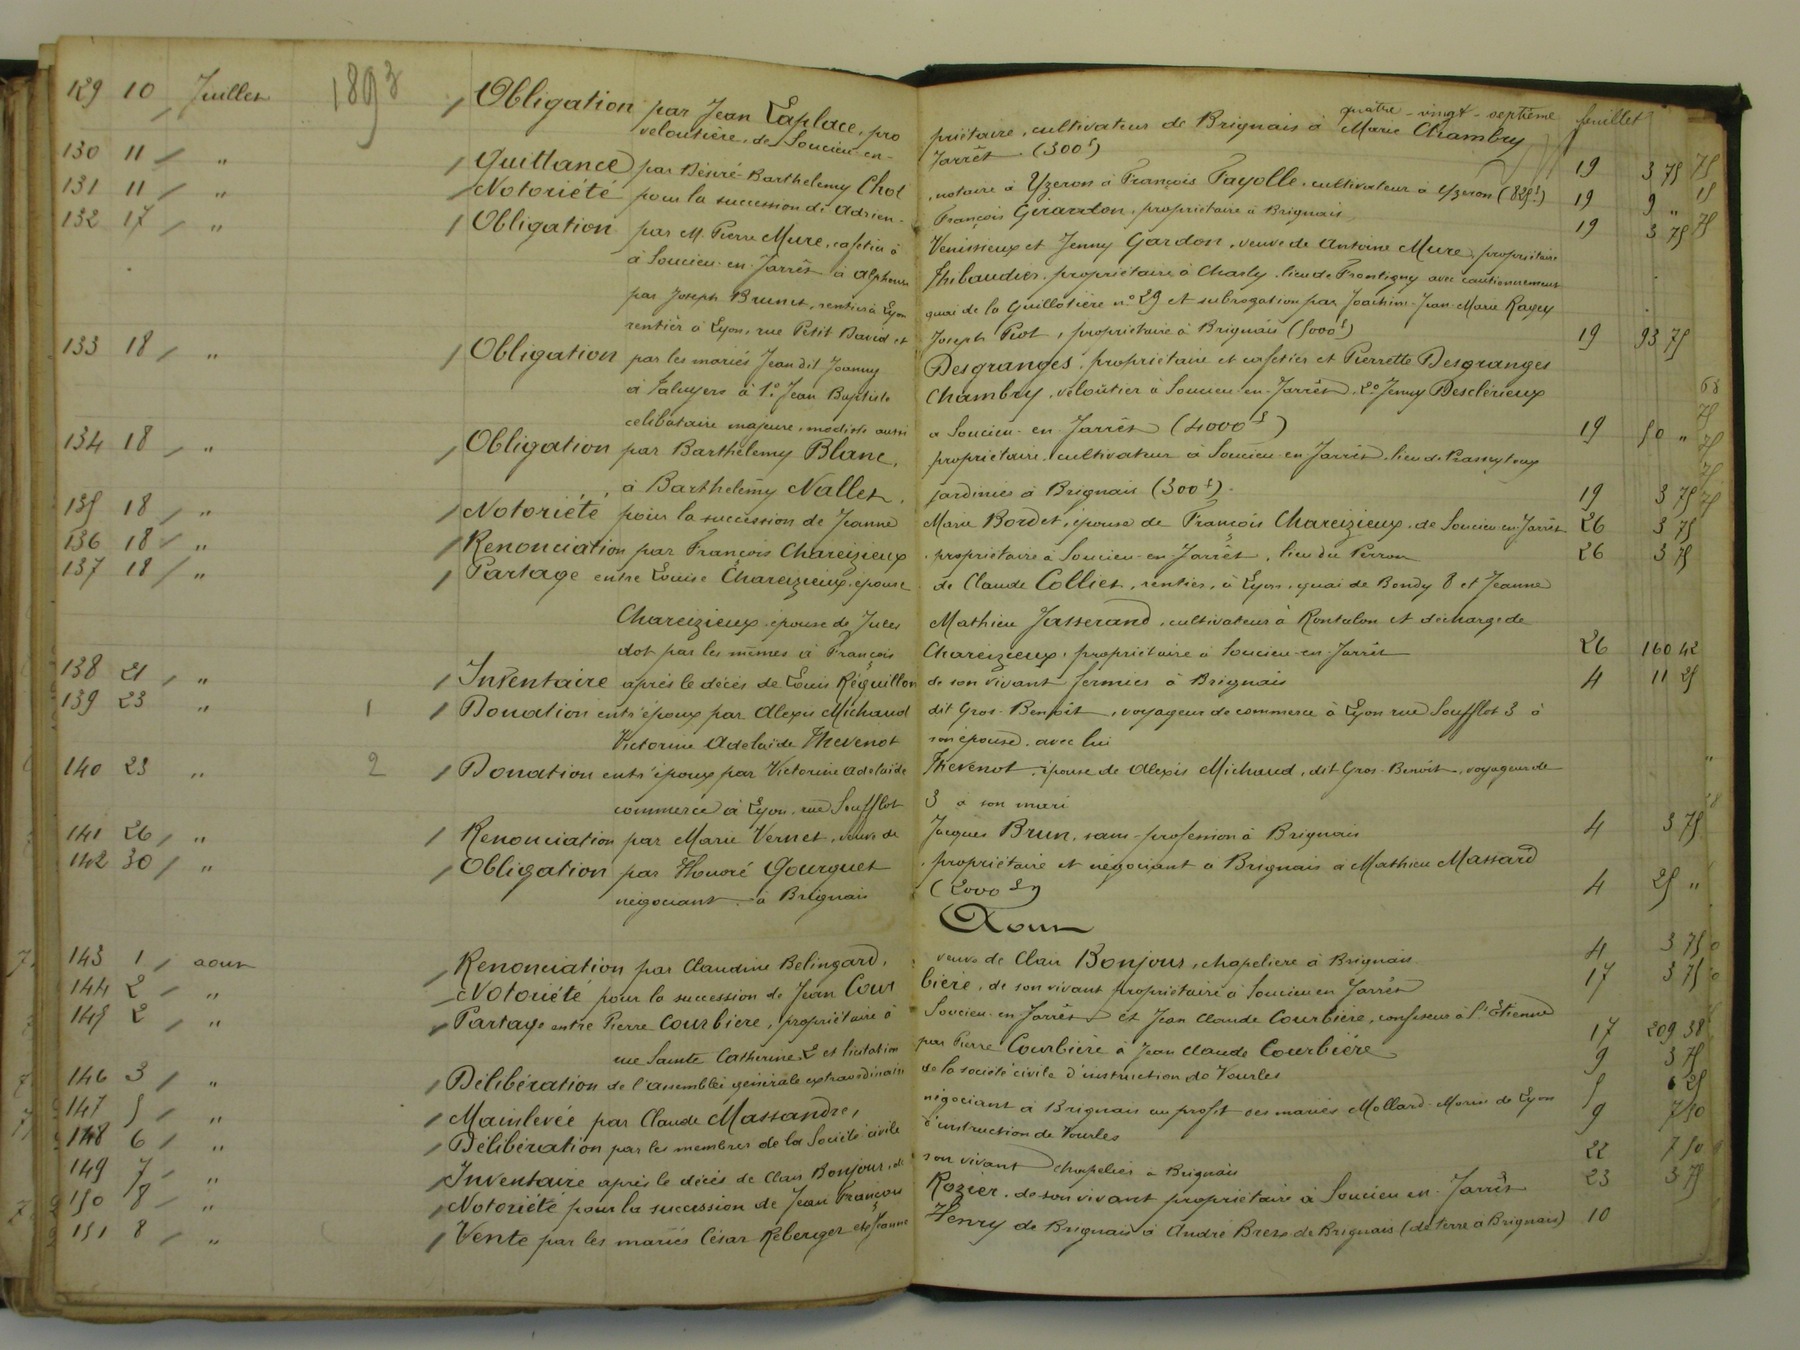 quatre-vingt-septième feuillet
129 10 Juillet 1893 Obligation par Jean Laplace, pro priétaire, cultivateur de Brignais à Marie Chambry
veloutière, de Soucieu-en- Jarrêt (300f) 19 3 75
130 11 " Quittance par Désiré-Barthelemy Chol, notaire à Yzeron à François Fayolle, cultivateur à Yzeron (825f) 19 9 "
131 11 " Notoriété pour la succession de Adrien- François Girardon, propriétaire à Brignais 19 3 75
132 17 " Obligation par M. Pierre Mure, cafetier à Venissieux et Jenny Gardon, veuve de Antoine Mure, propriétaire
à Soucieu-en-Jarrêt à Alphonse Thibaudier, propriétaire à Charly, lieu de Frontigny avec cautionnement
par Joseph Brunet, rentier à Lyon quai de la Guillotière no 29 et subrogation par Joachim-Jean-Marie Ragey
rentier à Lyon, rue Petit David et Joseph Piot, propriétaire à Brignais (5000f) 19 93 75
133 18 " Obligation par les mariés Jean dit Joanny Desgranges, propriétaire et cafetier et Pierrette Desgranges
à Taluyers à 1o Jean Baptiste Chambry, veloutier à Soucieu-en-Jarrêt, 2o Jenny Desclérieux
célibataire majeure, modiste aussi à Soucieu-en-Jarrêt (4000f) 19 50 "
134 18 " Obligation par Barthélemy Blanc, propriétaire, cultivateur à Soucieu en Jarrêt, lieu de
à Barthélemy Nallet, jardinier à Brignais (300f) 19 3 75
135 18 " Notoriété pour la succession de Jeanne Marie Bordet, épouse de François Chareizieux, de Soucieu en Jarrêt 26 3 75
136 18 " Renonciation par François Chareizieux propriétaire à Soucieu-en-Jarrêt, lieu du Perron 26 3 75
137 18 " Partage entre Louise Chareizieux, épouse de Claude Collier, rentier, à Lyon, quai de Bondy 8 et Jeanne
Chareizieux, épouse de Jules Mathieu Jasserand, cultivateur à Rontalon et décharge de
dot par les mêmes à François Chareizieux, propriétaire à Soucieu-en-Jarrêt 26 160 42
138 21 " Inventaire après le décès de Louis Réguillon de son vivant fermier à Brignais 4 11 25
139 23 " 1 Donation entr'époux par Alexis Michaud dit Gros-Benoît, voyageur de commerce à Lyon rue Soufflot 3 à
Victorine Adelaïde Thevenot son épouse, avec lui
140 23 " 2 Donation entr'époux par Victorine Adelaïde Thevenot, épouse de Alexis Michaud, dit Gros-Benoît, voyageur de
commerce à Lyon, rue Soufflot 3 à son mari
141 26 " Renonciation par Marie Vernet, veuve de Jacques Brun, sans profession à Brignais 4 3 75
142 30 " Obligation par Honoré Gourguet propriétaire et négociant à Brignais à Mathieu Massard
négociant à Brignais (2000f) 4 25 "
Aout
143 1 aout Renonciation par Claudine Belingard, veuve de Clair Bonjour, chapelière à Brignais 4 3 75
144 2 " Notoriété pour la succession de Jean Cour bière, de son vivant propriétaire à Soucieu en Jarrêt 17 3 75
145 2 " Partage entre Pierre Courbiere, propriétaire à Soucieu-en-Jarrêt et Jean Claude Courbière, confiseur à St Etienne
rue Sainte Catherine 2 et licitation par Pierre Courbière à Jean Claude Courbière 17 209 38
146 3 " Délibération de l'assemblée générale extraordinaire de la société civile d'instruction de Vourles 9 3 75
147 5 " Mainlevée par Claude Massandre, négociant à Brignais au profit des mariés Mollard-Morin de Lyon 5 6 25
148 6 " Délibération par les membres de la Société civile d'instruction de Vourles 9 7 50
149 7 " Inventaire après le décès de Clair Bonjour, de son vivant chapelier à Brignais 22 7 50
150 8 " Notoriété pour la succession de Jean François Rozier, de son vivant propriétaire à Soucieu en Jarrêt 23 3 75
151 8 " Vente par les mariés César Reberget et Jeanne Henry de Brignais à André Brero de Brignais (de terre à Brignais) 10